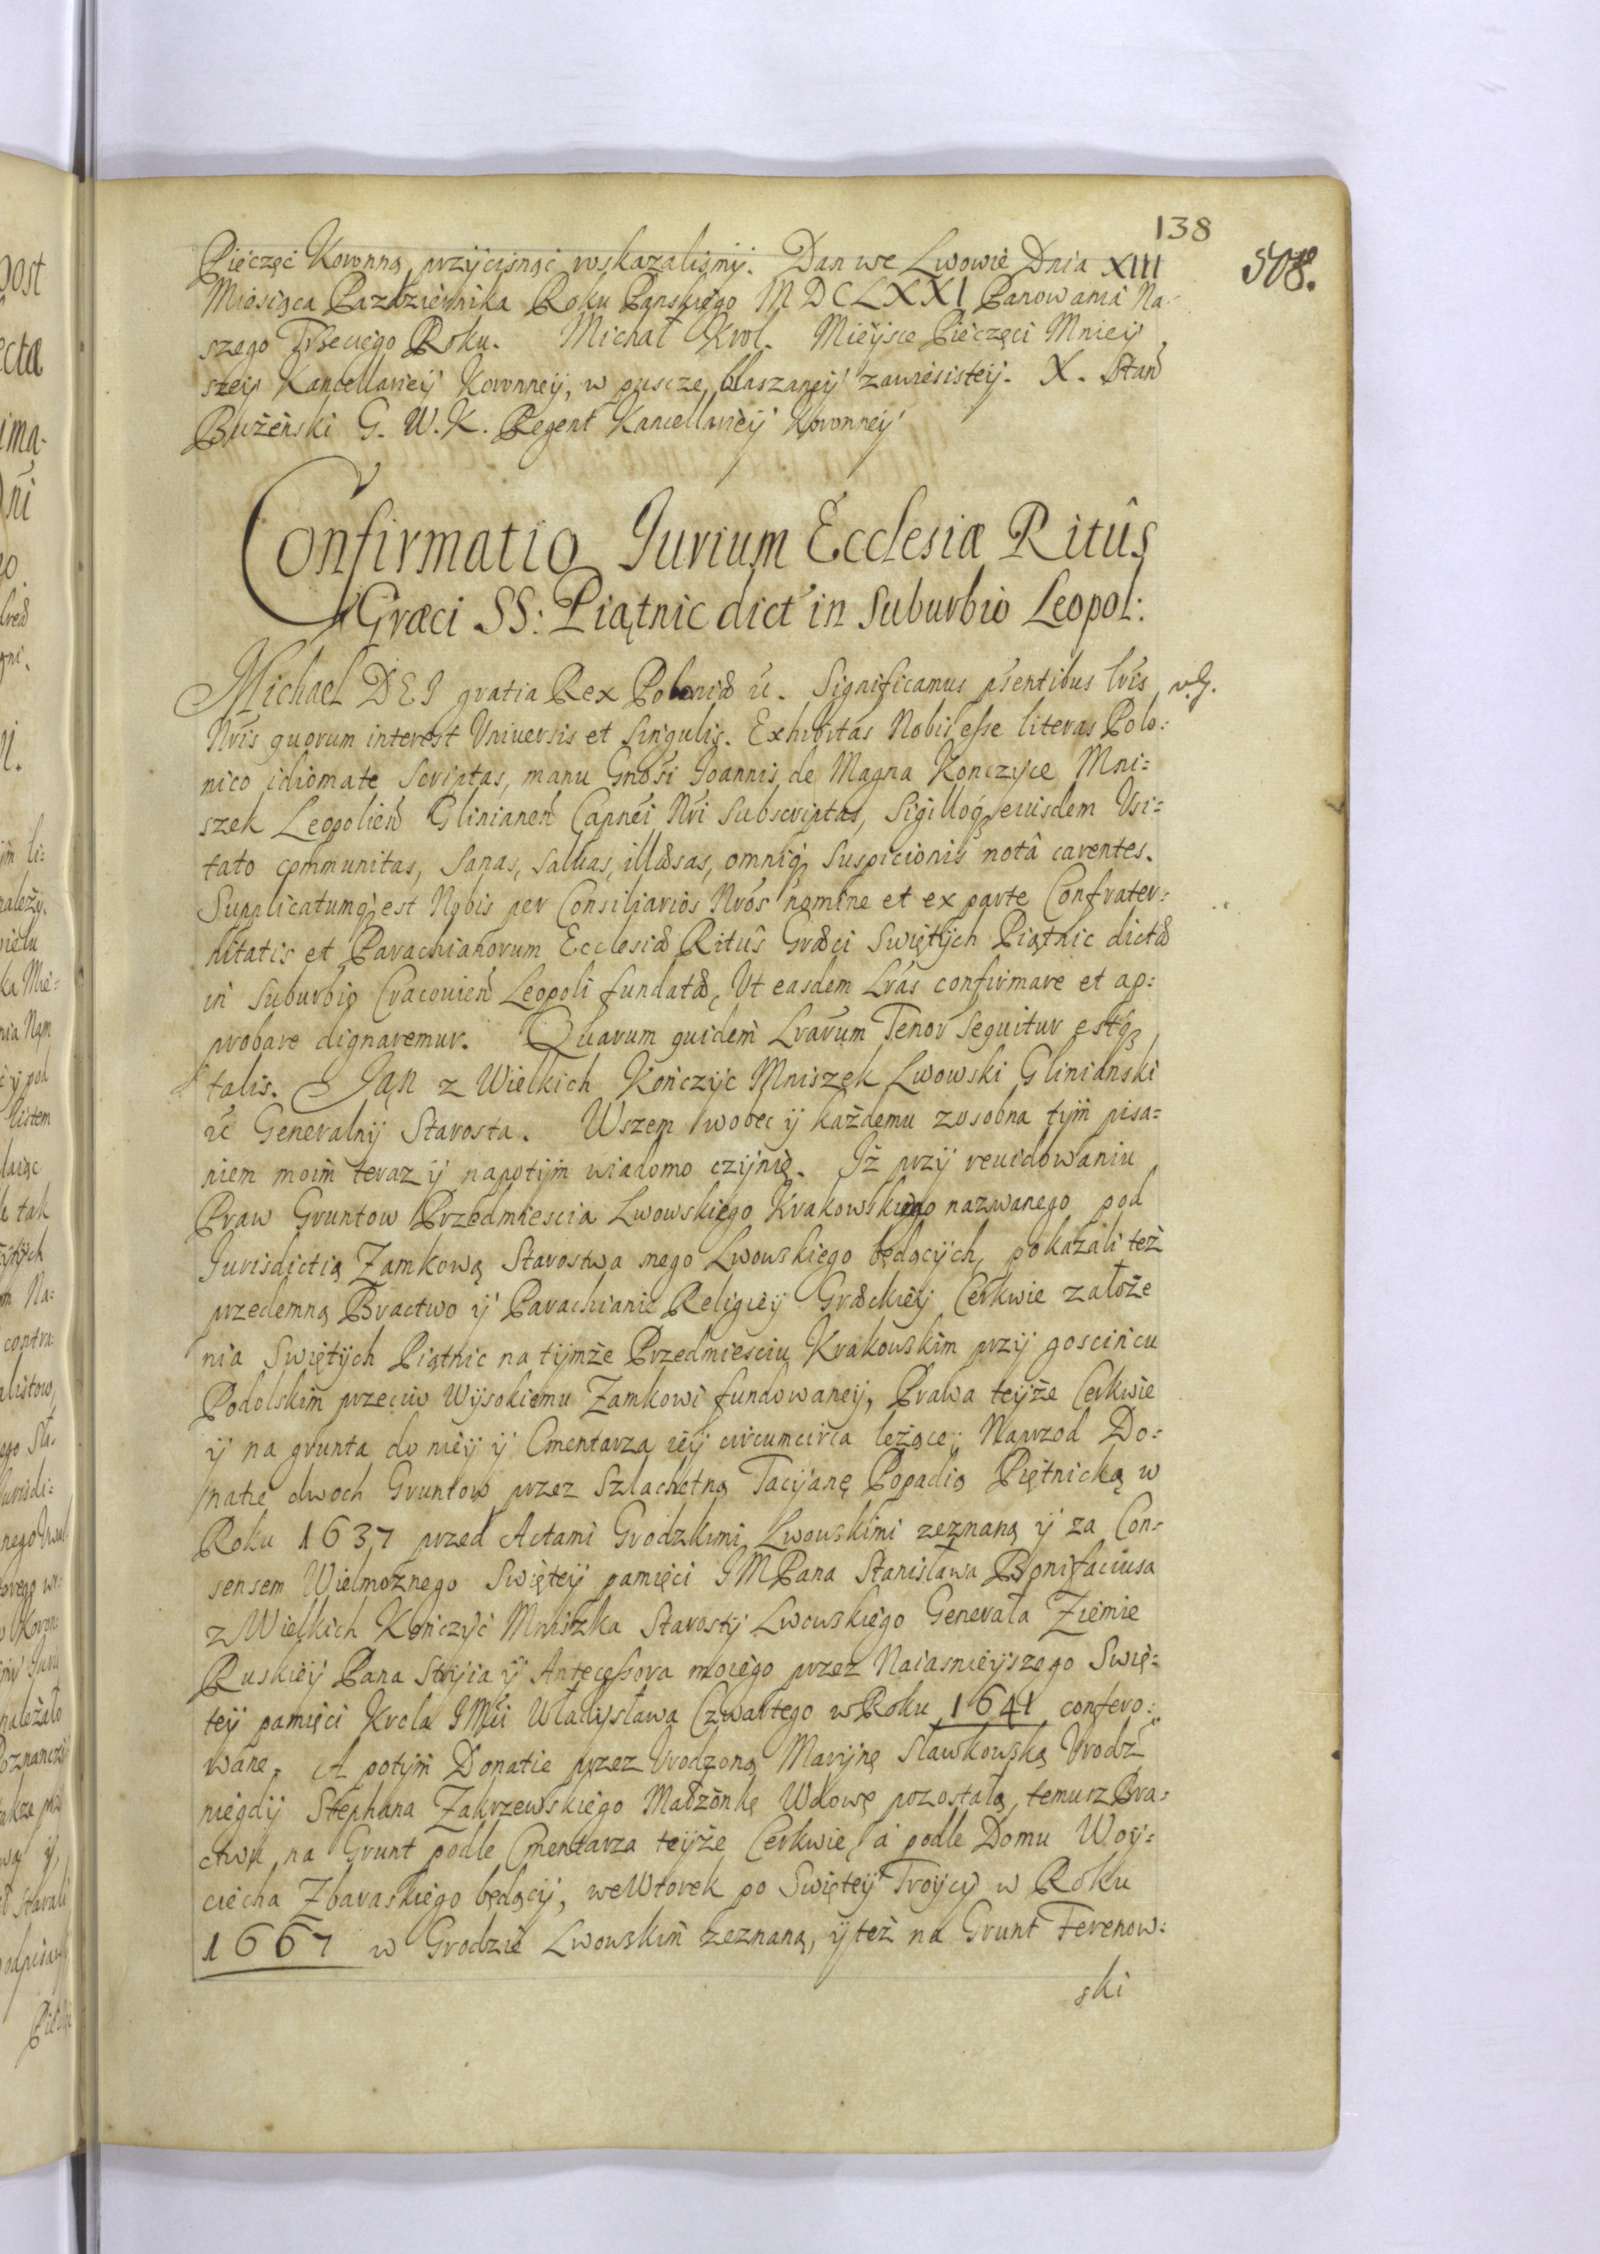 138
508.
Pięczęć Koronną przycisnąć roskazalismy. Dan we Lwowie Dnia XIII
Miesiąca Pazdziernika Roku Panskiego MDCLXXI Panowania Na-
szego Trzeciego Roku. Michał Krol. Mieysce Pieczęci Mniey
szey Kancellariey Koronney, w puszce blaszaney zawiesistey. X. Stan
Bużenski G. W. K. Regent Kancellariey Koronney
Confirmatio Jurium Ecclesiæ Ritûs
Græci SS: Piątnic dict in Suburbio Leopol:
Michael DEI gratia Rex Poloniæ &c. Significamus pñtibus lris
Nris quorum interest Vniversis et singulis. Exhibitas Nobis esse literas Polo:
nico idiomate scriptas, manu Gnosi Joannis de Magna Konczyce Mni:
szek Leopolien Glinianen Capnei Nri subscriptas, Sigilloq eiusdem Usi:
tato communitas, sanas, salvas, illæsas, omniq suspicionis notâ carentes.
Supplicatumq est Nobis per Consiliarios Nros nomine et ex parte Confrater:
nitatis et Parachianorum Ecclesiæ Ritûs Græci Swiętych Piątnic dictæ
in Suburbio Cracovien Leopoli fundatæ, Ut easdem Lras confirmare et ap:
probare dignaremur. Quarum quidem Lrarum Tenor sequitur estq
talis. Jan z Wielkich Kończyc Mniszek Lwowski Glinianski
&c Generalny Starosta. Wszem wobec y każdemu zosobna tym pisa:
niem moim teraz y napotym wiadomo czynię. Iż przy rewidowaniu
Praw Gruntow Przedmiescia Lwowskiego Krakowskiego nazwanego pod
Jurisdictią Zamkową Starostwa mego Lwowskiego będących, pokazali też
przedemną Bractwo y Parachianie Religiey Græckiey Cerkwie założe
nia Swiętych Piątnic na tymże Przedmiesciu Krakowskim przy goscińcu
Podolskim przeciw Wysokiemu Zamkowi fundowaney, Prawa teyże Cerkwie
y na grunta do niey y Cmentarza iey circumcirca leżące: Naprzod Do:
natie dwoch Gruntow przez Szlachetną Tacyanę Popadią Piętnicką w
Roku 1637 przed Actami Grodzkimi Lwowskimi zeznaną y za Con:
sensem Wielmożnego Swiętey pamięci JMPana Stanisława Bonifaciusa
z Wielkich Kończyc Mniszka Starosty Lwowskiego Generała Ziemie
Ruskiey Pana Stryia y Antecessora moiego przez Naiasnieyszego Swię:
tey pamięci Krola JMci Władysława Czwartego w Roku 1641 confero:
wane. A potym Donatie przez Urodzoną Marynę Sławkowską Urodz
niegdy Stephana Zakrzewskiego Małżonkę Wdowę pozostałą, temusz Bra:
ctwu na Grunt podle Cmentarza teyże Cerkwie, a podle Domu Woy:
ciecha Zbaraskiego będący, we Wtorek po Swiętey Troycy w Roku
1667 w Grodzie Lwowskim zeznaną, y też na Grunt Ferenow:
ski